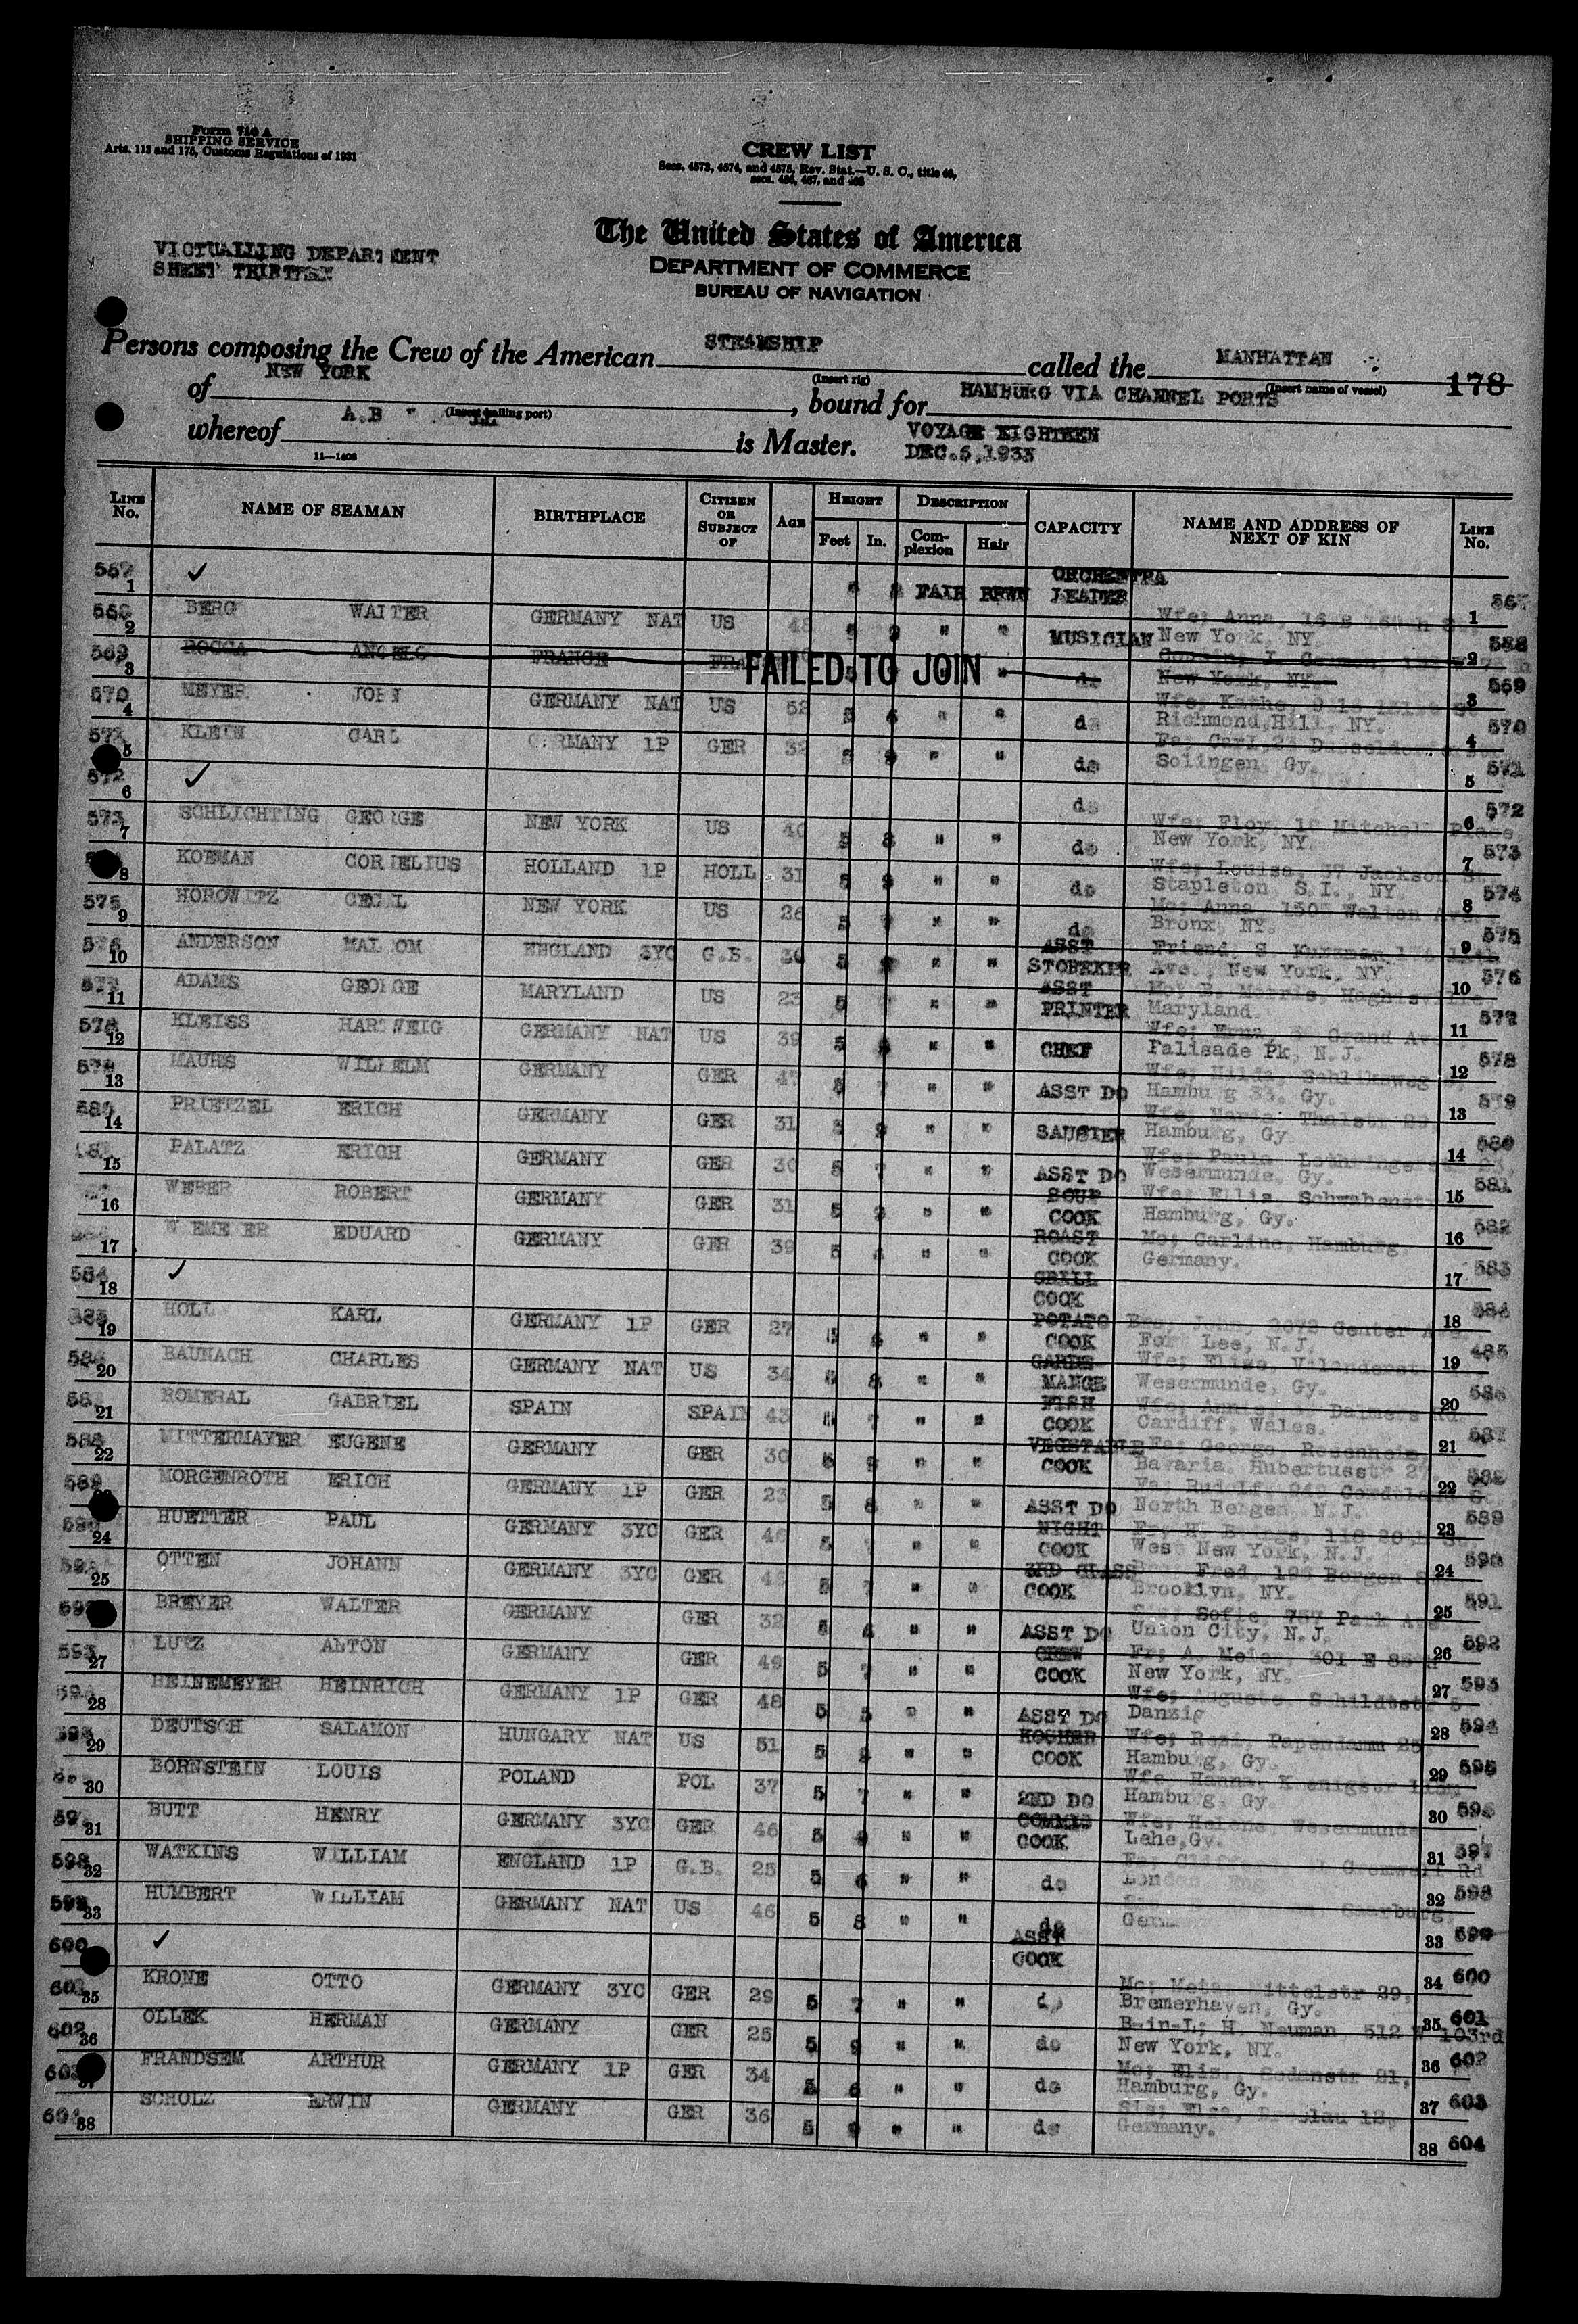 Form 710 A
SHIPPING SERVICE
Arts. 113 and 175, Customs Regulations of 1931
CREW LIST
Secs. 4573, 4574, and 4575, Rev. Stat.—U. S. C., title 46,
secs. 466, 467, and 468
The United States of America
DEPARTMENT OF COMMERCE
BUREAU OF NAVIGATION
VICTUALLING DEPARTMENT
SHEET THIRTEEN
Persons composing the Crew of the American STEAMSHIP called the MANHATTAN
(Insert rig) (Insert name of vessel) 178
of NEW YORK, bound for HAMBURG VIA CHANNEL PORTS
whereof A.B is Master. VOYAGE EIGHTEEN
DEC.6,1933
11—1406
LINE No. NAME OF SEAMAN BIRTHPLACE CITIZEN OR SUBJECT OF AGE HEIGHT Feet In. DESCRIPTION Complexion Hair CAPACITY NAME AND ADDRESS OF NEXT OF KIN LINE No.
567 1 ✓ 5 FAIR BRWN ORCHESTRA LEADER 1 567
568 2 BERG WALTER GERMANY NAT US 48 5 9 " " MUSICIAN Wfe; Anna, New York, NY. 2 568
569 3 ROCCA ANGELO FRANCE FRA FAILED TO JOIN do New York, NY. 3 569
570 4 MEYER JOHN GERMANY NAT US 52 5 6 " " do Wfe; Kathe, Richmond Hill, NY. 4 570
571 5 KLEIN CARL GERMANY 1P GER 32 5 9 " " do Fa; Carl, 23 Solingen, Gy. 5 571
572 6 ✓ do 6 572
573 7 SCHLICHTING GEORGE NEW YORK US 40 5 8 " " do Wfe; Floy, Mitchell Place, New York, NY. 7 573
8 KOEMAN CORNELIUS HOLLAND 1P HOLL 31 5 9 " " do Wfe; Louise, 57 Jackson St. Stapleton, S.I., NY. 8 574
575 9 HOROWITZ CECIL NEW YORK US 26 5 7 " " do Mo; Anna, Walton Ave. Bronx, NY. 9 575
576 10 ANDERSON MALCOM ENGLAND 3YC G.B. 30 5 " " ASST STOREKER Friend; S. Kurzman, Ave., New York, NY. 10 576
577 11 ADAMS GEORGE MARYLAND US 23 5 " " ASST PRINTER Mo; E. Morris, Maryland. 11 577
578 12 KLEISS HARTWEIG GERMANY NAT US 39 5 " " CHEF Wfe; Erna, Grand Ave. Palisade Pk, N.J. 12 578
579 13 MAURS WILHELM GERMANY GER 47 5 7 " " ASST DO Wfe; Hilda, Hamburg 33. Gy. 13 579
580 14 PRIETZEL ERICH GERMANY GER 31 5 9 " " SAUSIER Wfe; Maria, Thalstr Hamburg, Gy. 14 580
15 PALATZ ERICH GERMANY GER 30 5 7 " " ASST DO Wfe; Paula, Wesermunde, Gy. 15 581
16 WEBER ROBERT GERMANY GER 31 5 9 " " SOUP COOK Wfe; Ellis, Schwabenstr Hamburg, Gy. 16 582
17 EDUARD GERMANY GER 39 5 " " ROAST COOK Mo; Carline, Hamburg, Germany. 17 583
584 18 ✓ GRILL COOK 18 584
585 19 HOLL KARL GERMANY 1P GER 27 5 6 " " POTATO COOK Bro; John, 2072 Center Ave. Fort Lee, N.J. 19 485
586 20 BAUNACH CHARLES GERMANY NAT US 34 5 8 " " GARDE MANGE Wfe; Elise, Wesermunde, Gy. 20 586
587 21 ROMERAL GABRIEL SPAIN SPAIN 43 5 7 " " FISH COOK Wfe; Annie, Cardiff, Wales. 21 587
588 22 MITTERMAYER EUGENE GERMANY GER 30 5 9 " " VEGETABLE COOK Fa; George, Rosenheim Bavaria. Hubertusstr 27. 22 588
589 MORGENROTH ERICH GERMANY 1P GER 23 5 8 " " ASST DO Fa; Rudolf, North Bergen, N.J. 23 589
590 24 HUETTER PAUL GERMANY 3YC GER 46 5 7 " " NIGHT COOK Fr; H. West New York, N.J. 24 590
591 25 OTTEN JOHANN GERMANY 3YC GER 43 5 7 " " 3RD CLASS COOK Bro; Fred, 196 Bergen St. Brooklyn, NY. 25 591
592 BREYER WALTER GERMANY GER 32 5 6 " " ASST DO Sis; Sofie, 757 Park Ave Union City, N.J. 26 592
593 27 LUTZ ANTON GERMANY GER 49 5 7 " " CREW COOK Fr; A. Meier, 301 E 88th New York, NY. 27 593
594 28 HEINEMEYER HEINRICH GERMANY 1P GER 48 5 5 " " ASST DO Wfe; Auguste, Schildtstr 5, Danzig 28 594
595 29 DEUTSCH SALAMON HUNGARY NAT US 51 5 " " KOSHER COOK Wfe; Rosi, Papendamm 25, Hamburg, Gy. 29 595
30 BORNSTEIN LOUIS POLAND POL 37 5 7 " " 2ND DO Wfe, Hanna, Hamburg, Gy. 30 596
597 31 BUTT HENRY GERMANY 3YC GER 46 5 9 " " COMMIS COOK Wfe; Helene, Wesermunde Lehe,Gy. 31 597
598 32 WATKINS WILLIAM ENGLAND 1P G.B. 25 5 6 " " do Cromwell Rd London, Eng 32 598
599 33 HUMBERT WILLIAM GERMANY NAT US 46 5 8 " " do 33 599
600 ✓ ASST COOK 34 600
601 35 KRONE OTTO GERMANY 3YC GER 29 5 7 " " do Mo; Meta, Mittelstr 29, Bremerhaven, Gy. 35 601
602 36 OLLEK HERMAN GERMANY GER 25 5 9 " " do B-in-L; H. Neuman, 512 W 103rd New York, NY. 36 602
603 37 FRANDSEM ARTHUR GERMANY 1P GER 34 5 6 " " do Mo; Elis, Sedanstr 21, Hamburg, Gy. 37 603
604 38 SCHOLZ ERWIN GERMANY GER 36 5 9 " " do Sis; Elsa, Breslau 12, Germany. 38 604